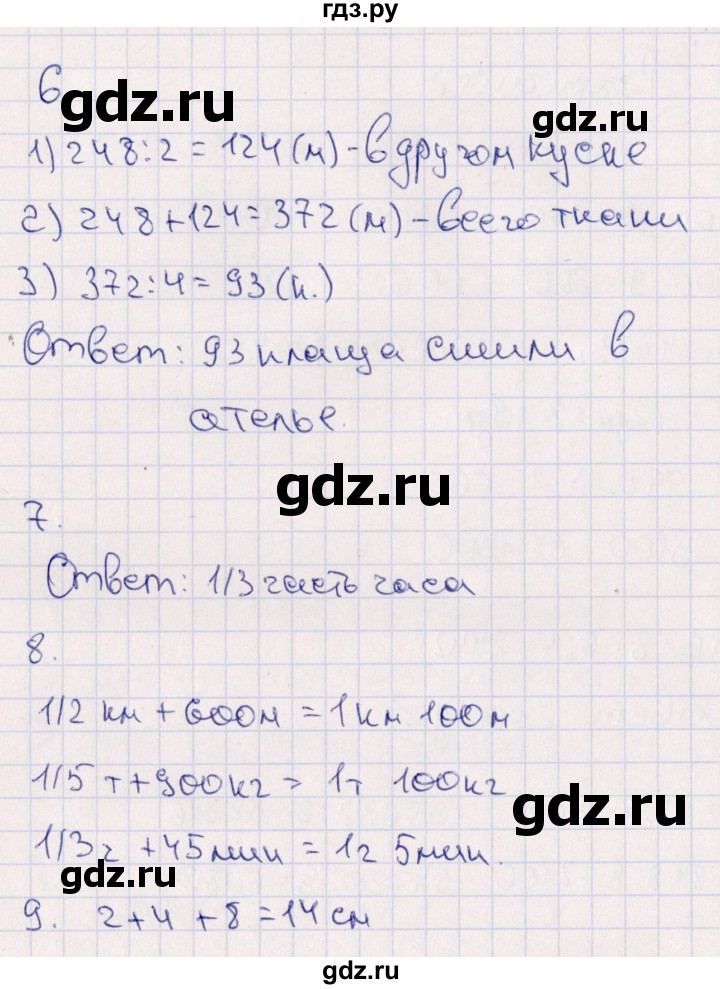 гдз.ру
gdz.ru
6
gdz.ru
1) 248:2=124(м)-в другом куске
2) 248+124=372(м)-всего ткани
3) 372:4=93(п.)
Ответ: 93 плаща сшили в
ателье.
gdz.ru
7.
Ответ: 1/3 часть часа
8.
1/2 км + 600м = 1км 100м
1/5 т+900кг= 1т 100кг
gdz.ru
1/3ч +45мин = 1ч 5мин.
gdz.ru
9. 2+4+8=14см
gdz.ru